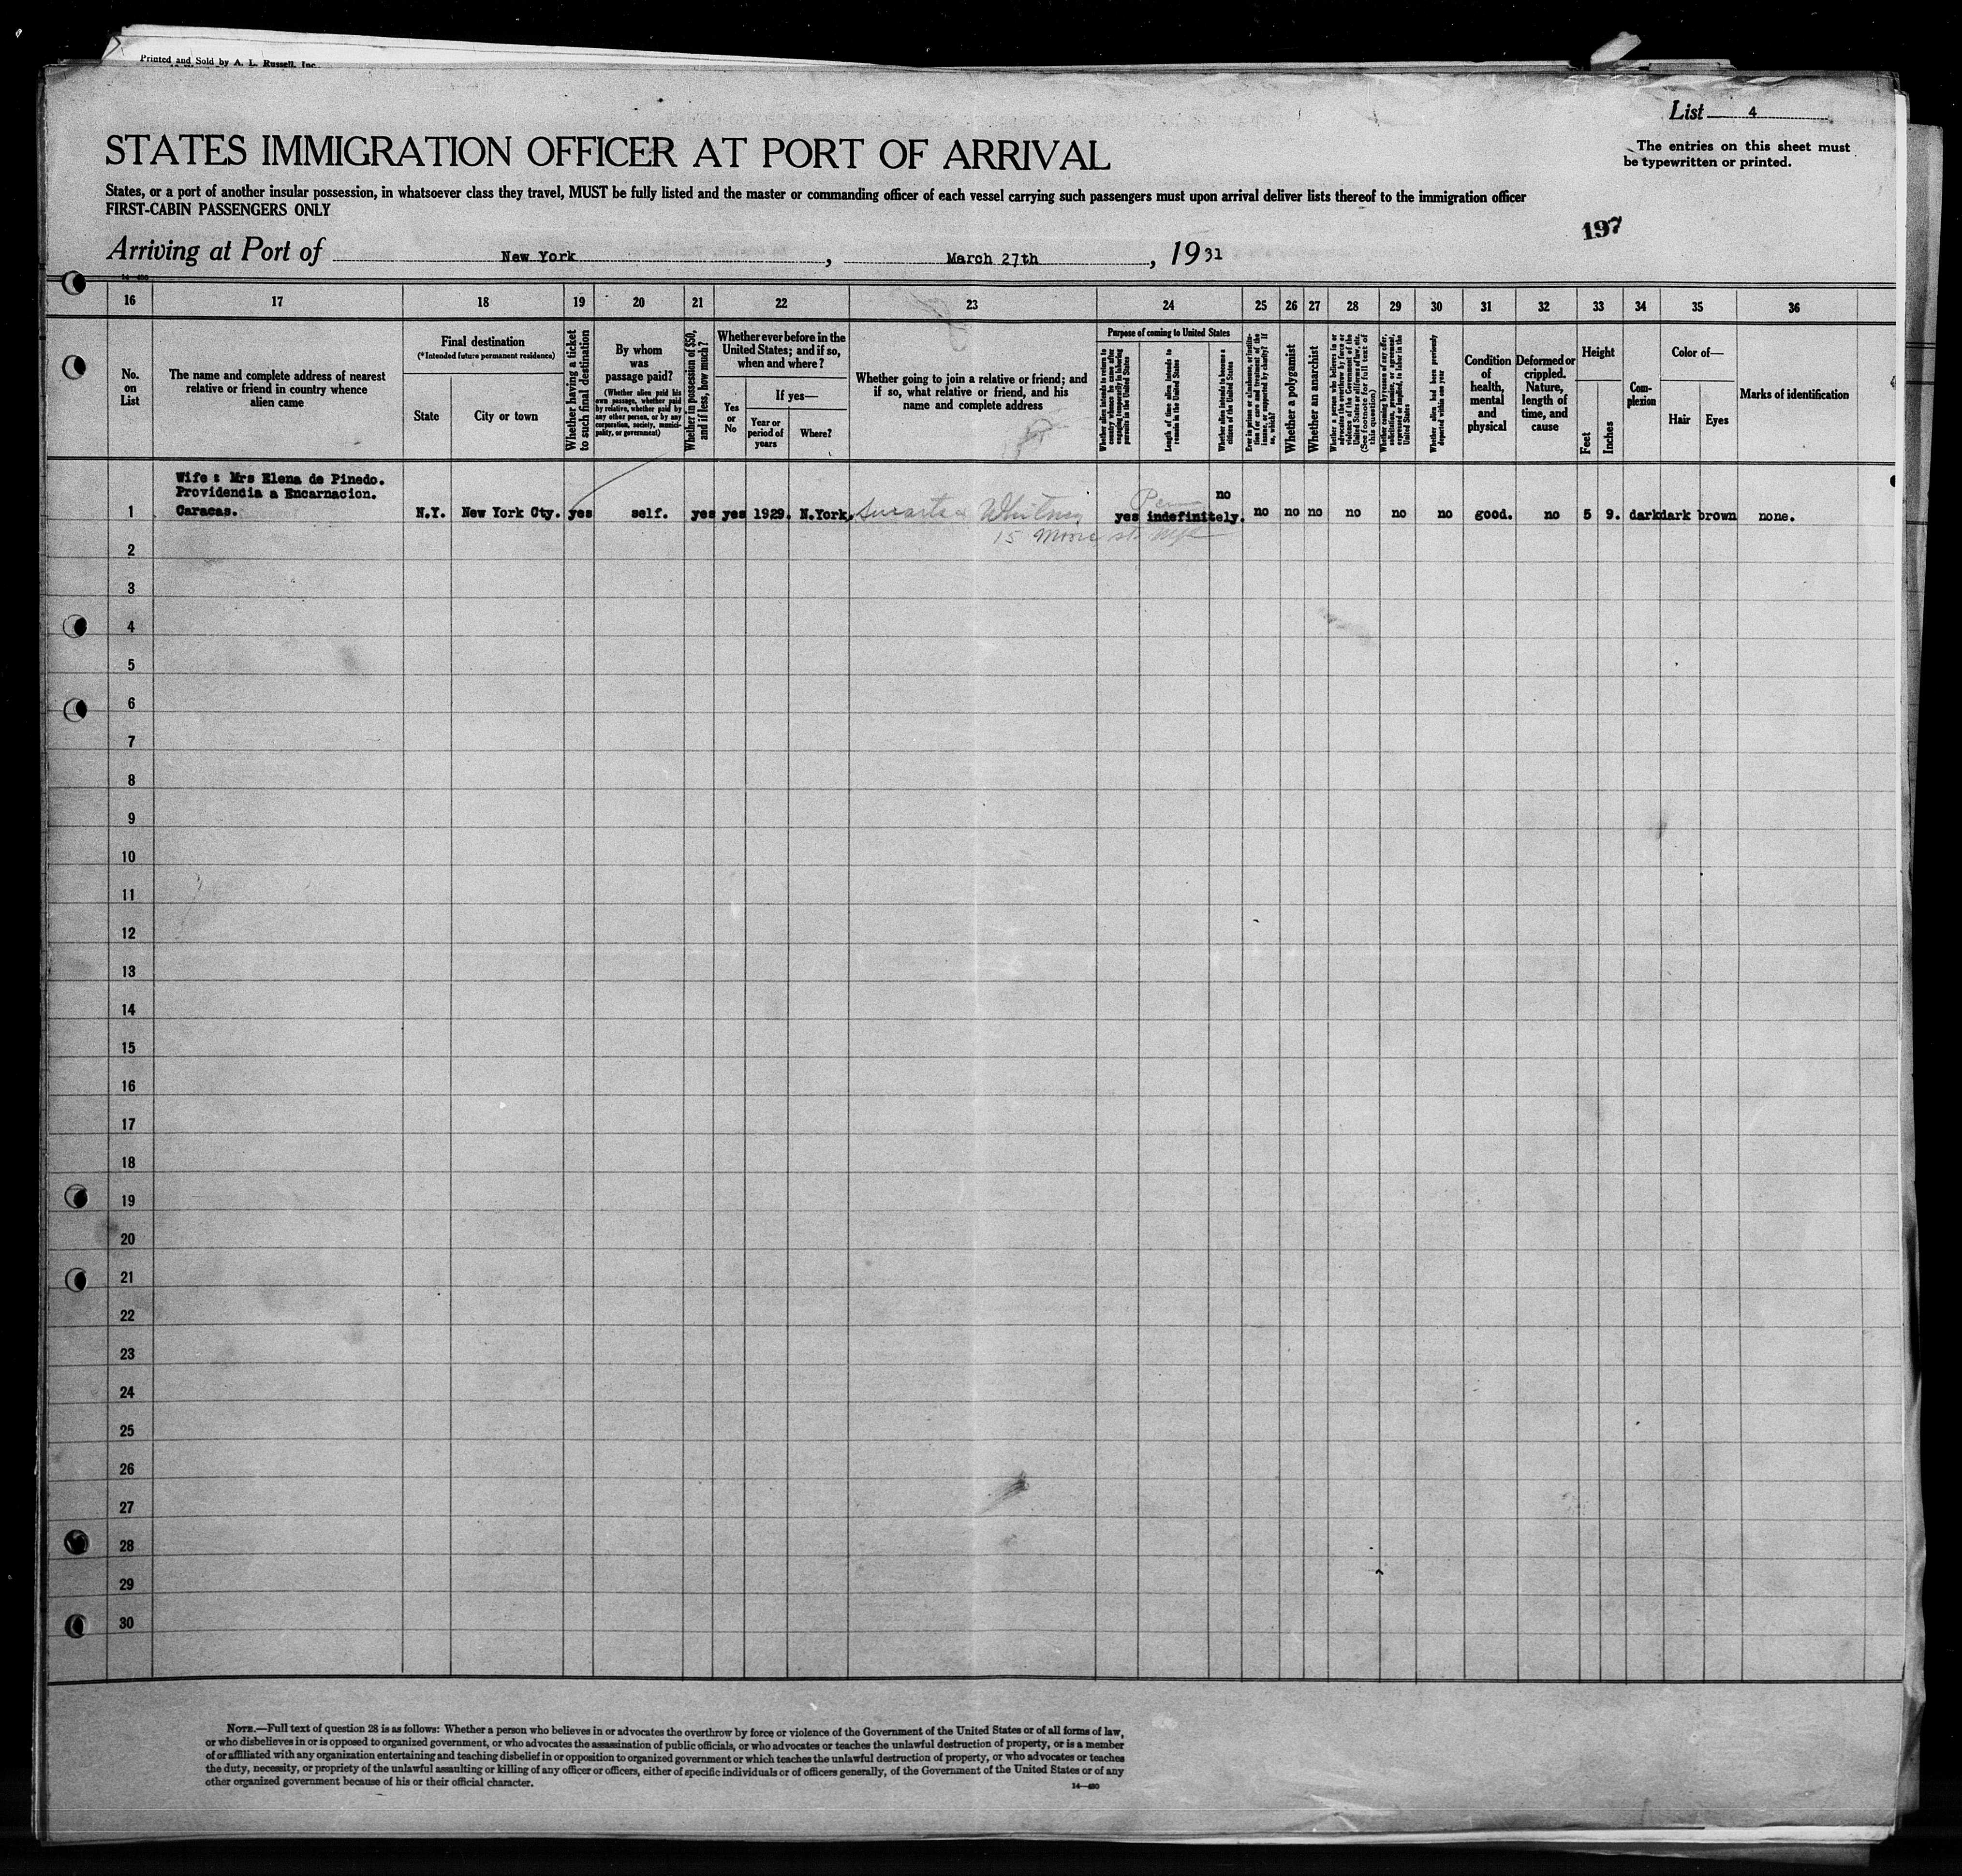 Printed and Sold by A. L. Russell, Inc.
List 4
STATES IMMIGRATION OFFICER AT PORT OF ARRIVAL
The entries on this sheet must
be typewritten or printed.
States, or a port of another insular possession, in whatsoever class they travel, MUST be fully listed and the master or commanding officer of each vessel carrying such passengers must upon arrival deliver lists thereof to the immigration officer
FIRST-CABIN PASSENGERS ONLY
197
Arriving at Port of New York, March 27th, 1931
14-480
16 17 18 19 20 21 22 23 24 25 26 27 28 29 30 31 32 33 34 35 36
No.
on
List
The name and complete address of nearest
relative or friend in country whence
alien came
Final destination
(*Intended future permanent residence)
State
City or town
Whether having a ticket
to such final destination
By whom
was
passage paid?
(Whether alien paid his
own passage, whether paid
by relative, whether paid by
any other person, or by any
corporation, society, munici-
pality, or government)
Whether in possession of $50,
and if less, how much?
Whether ever before in the
United States; and if so,
when and where?
Yes
or
No
If yes—
Year or
period of
years
Where?
Whether going to join a relative or friend; and
if so, what relative or friend, and his
name and complete address
Purpose of coming to United States
Whether alien intends to return to
country whence he came after
engaging temporarily in laboring
pursuits in the United States
Length of time alien intends to
remain in the United States
Whether alien intends to become a
citizen of the United States
Ever in prison or almshouse, or institu-
tion for care and treatment of the
insane, or supported by charity? If
so, which?
Whether a polygamist
Whether an anarchist
Whether a person who believes in or
advocates the overthrow by force or
violence of the Government of the
United States or all forms of law, etc.
(See footnote for full text of
this question)
Whether coming by reason of any offer,
solicitation, promise, or agreement,
expressed or implied, to labor in the
United States
Whether alien had been previously
deported within one year
Condition
of
health,
mental
and
physical
Deformed or
crippled.
Nature,
length of
time, and
cause
Height
Feet
Inches
Com-
plexion
Color of—
Hair
Eyes
Marks of identification
Wife: Mrs Elena de Pinedo.
Providencia a Encarnacion.
no
1 Caracas. N.Y. New York Cty. yes self. yes yes 1929. N.York. Whitney yes indefinitely. no no no no no no good. no 5 9. dark dark brown none.
15 Moore st NYC
2
3
4
5
6
7
8
9
10
11
12
13
14
15
16
17
18
19
20
21
22
23
24
25
26
27
28
29
30
NOTE.—Full text of question 28 is as follows: Whether a person who believes in or advocates the overthrow by force or violence of the Government of the United States or of all forms of law,
or who disbelieves in or is opposed to organized government, or who advocates the assassination of public officials, or who advocates or teaches the unlawful destruction of property, or is a member
of or affiliated with any organization entertaining and teaching disbelief in or opposition to organized government or which teaches the unlawful destruction of property, or who advocates or teaches
the duty, necessity, or propriety of the unlawful assaulting or killing of any officer or officers, either of specific individuals or of officers generally, of the Government of the United States or of any
other organized government because of his or their official character.
14-480